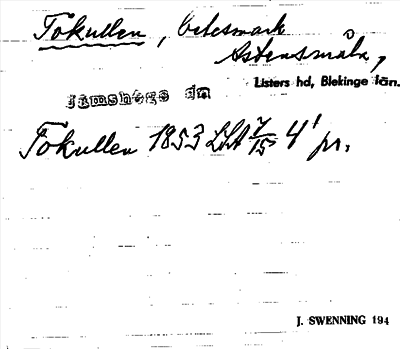 Tokullen, betesmark
Astensmåla,
Listers hd, Blekinge län.
Jämshögs sn
Tokullen 1853 LSA 7/15 4' pr.
J. SWENNING 194